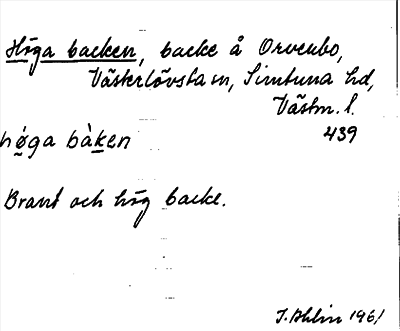 Höga backen, backe å Orvenbo,
Västerlövsta sn, Simtuna hd,
Västm. l.
439
høga bàken
Brant och hög backe.
I. Ahlin 1961